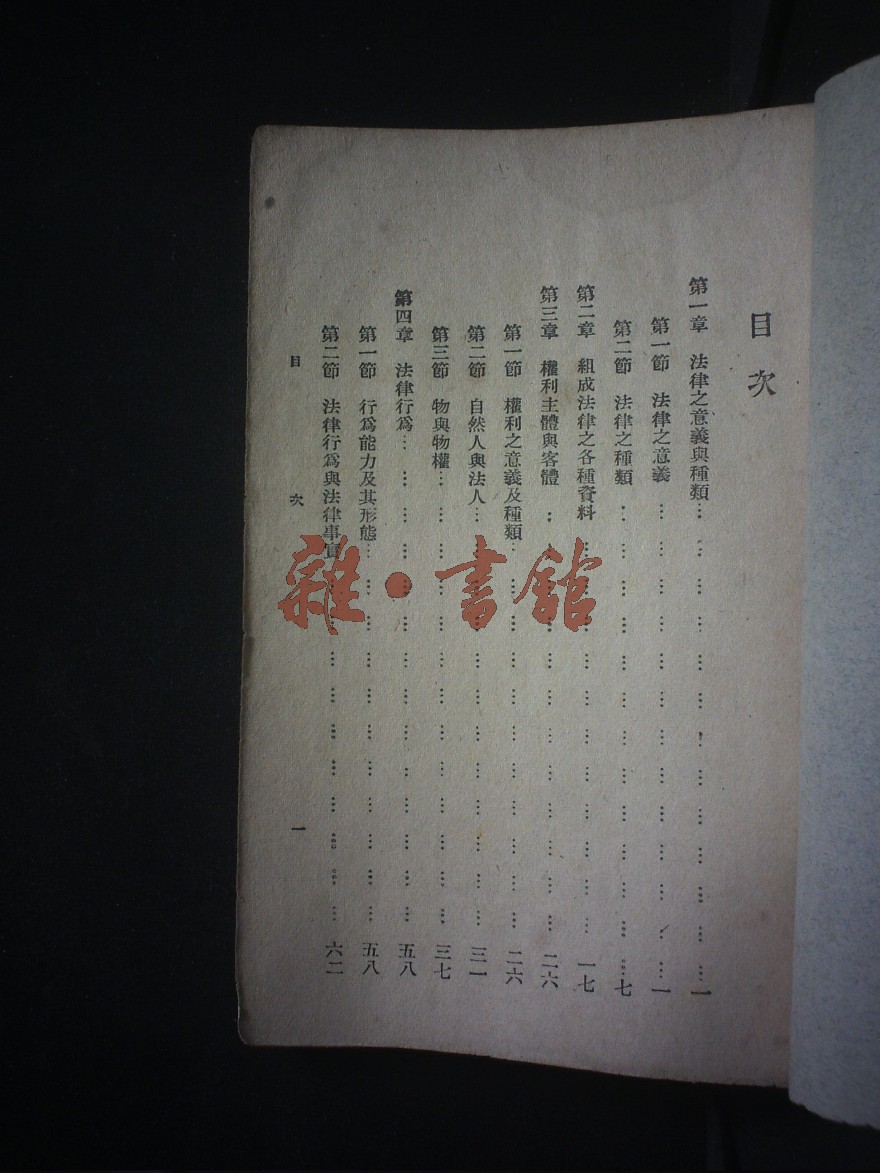 目次
第一章 法律之意義與種類………………一
第一節 法律之意義………………一
第二節 法律之種類………………七
第二章 組成法律之各種資料………………一七
第三章 權利主體與客體………………二六
第一節 權利之意義及種類………………二六
第二節 自然人與法人………………三一
第三節 物與物權………………三七
第四章 法律行爲………………五八
第一節 行爲能力及其形態………………五八
第二節 法律行爲與法律事實………………六二
目次 一
雜·書館